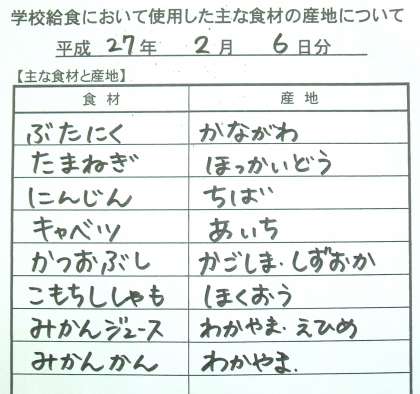 学校給食において使用した主な食材の産地について
平成 27年 2月 6日分
【主な食材と産地】
食材 産地
ぶたにく かながわ
たまねぎ ほっかいどう
にんじん ちば
キャベツ あいち
かつおぶし かごしま・しずおか
こもちししゃも ほくおう
みかんジュース わかやま・えひめ
みかんかん わかやま.